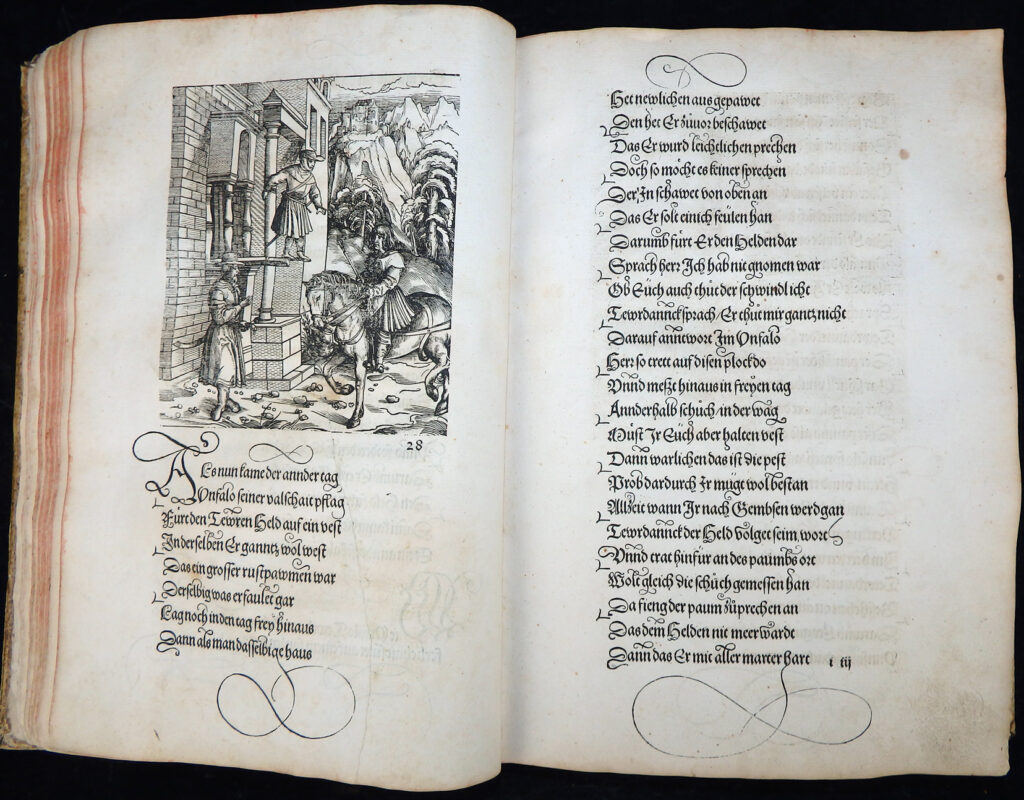 28
Als nun kame der annder tag
Vnfalo seiner valschait pflag
Fürt den Tewren Held auf ein vest
In derselben Er ganntz wol west
Das ein grosser rustpawmen war
Derselbig was erfaulet gar
Lag noch in den tag frey hinaus
Dann als man dasselbige haus
Het newlichen ausgepawet
Den het Er zuuor beschawet
Das Er wurd leichtlichen prechen
Doch so möcht es keiner sprechen
Der In schawet von oben an
Das Er solt einich feulen han
Darumb fürt Er den Helden dar
Sprach herr Ich hab nie gnomen war
Ob Euch auch thüt der schwindl icht
Tewrdannck sprach / Er thüt mir gantz nicht
Darauf anntwort Im Vnfalo
Herr so trett auf disen plock do
Vnnd meszt hinaus in freyen tag
Annderhalb schüch / in der wag
Müst Ir Euch aber halten vest
Dann warlichen das ist die pest
Prob dardurch Ir mügt wol bestan
Allzeit wann Ir nach Gembsen werd gan
Tewrdannck der Held volget seim wort
Vnnd trat hinfür an des paumbs ort
Wolt gleich die schüch gemessen han
Da fieng der paum zü prechen an
Das dem Helden nie meer wardt
Dann das Er mit aller marter hart
i iij